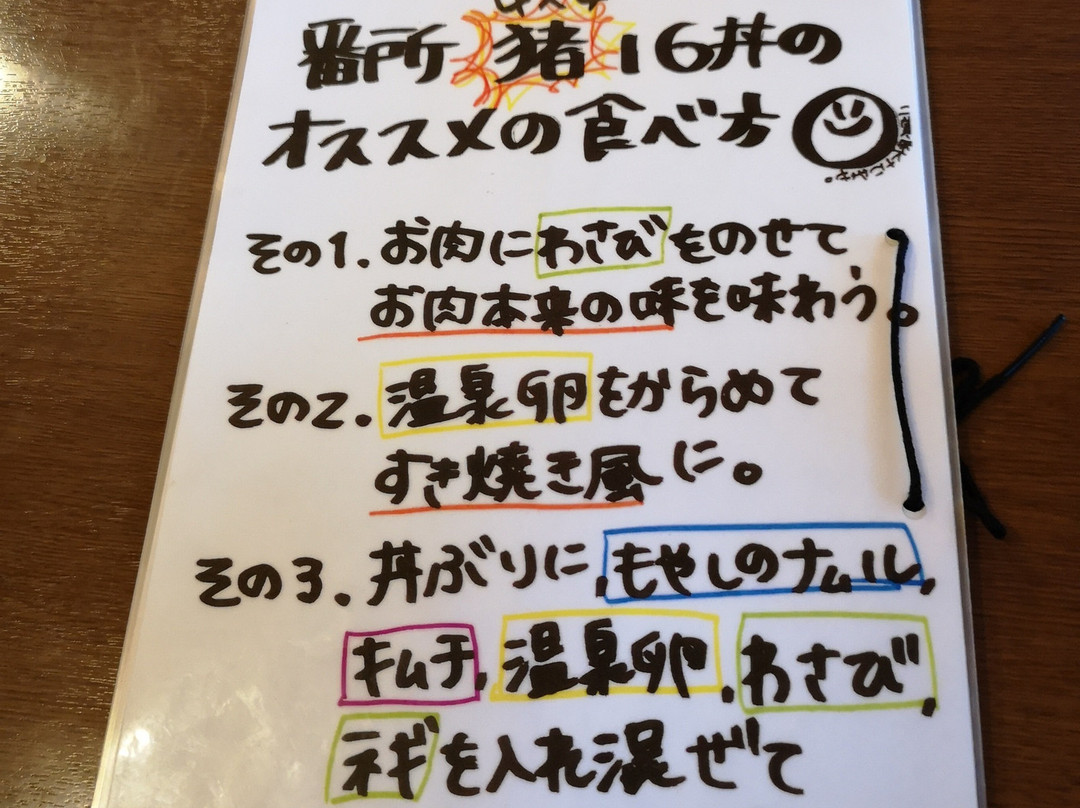 番所 猪16丼の
オススメの食べ方
その1. お肉にわさびをのせて
お肉本来の味を味わう。
その2. 温泉卵をからめて
すき焼き風に。
その3. 丼ぶりに,もやしのナムル,
キムチ,温泉卵,わさび,
ネギを入れ混ぜて